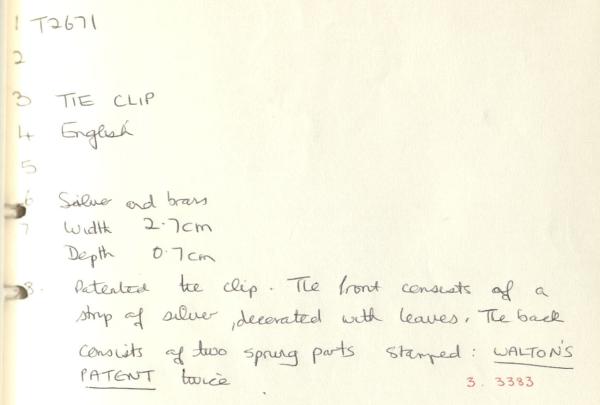 1 T2671
2
3 TIE CLIP
4 English
5
6 Silver and brass
7 Width 2.7cm
Depth 0.7cm
8. Patented tie clip. The front consists of a
strip of silver, decorated with leaves. The back
consists of two sprung parts stamped: WALTON'S
PATENT twice.
3. 3383